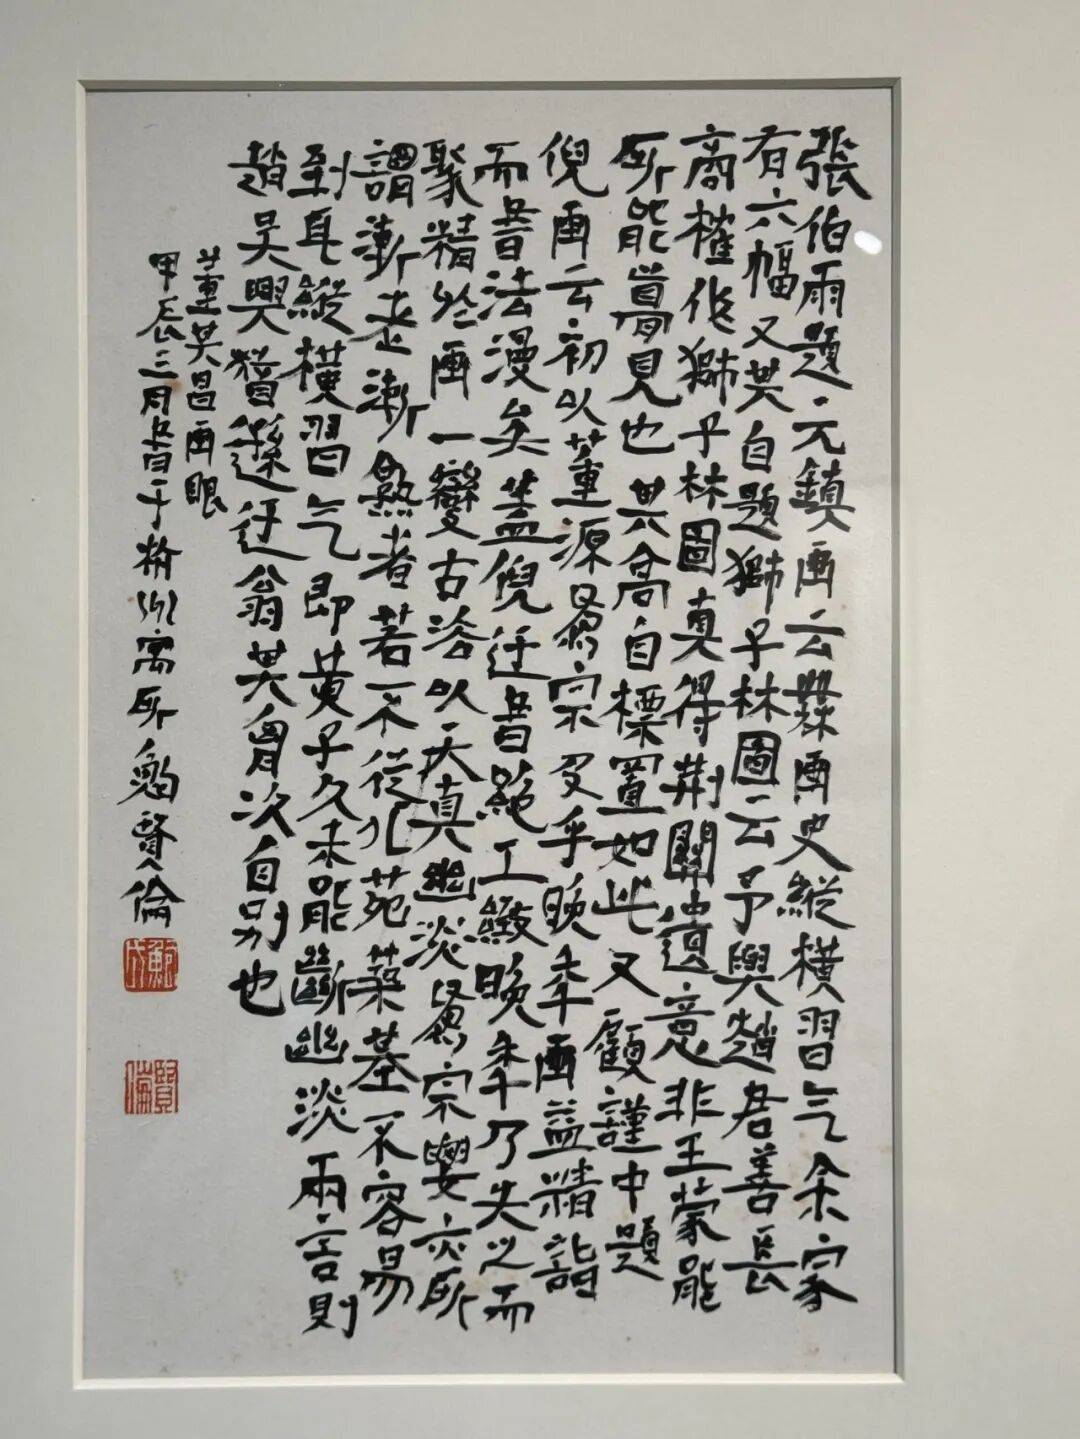 張伯雨題元鎮畫云無畫史縱橫習气余家
有六幅又其自題獅子林圖云予與趙君善長
商榷作獅子林圖真得荆關遺意非王蒙能
所能夢見也其高自標置如此又顧謹中題
倪畫云初以董源為宗及乎晚年畫益精詣
而書法漫矣蓋倪迂書絕工緻晚年乃失之而
聚精於畫一變古法以天真幽淡為宗要亦所
謂漸老漸熟者若不從北苑築基不容易
到耳縱橫習气即黃子久未能斷幽淡兩言則
趙吳興猶遜迂翁其胸次自別也
董其昌畫眼
甲辰三月書于州寓所鮑賢倫
賢倫